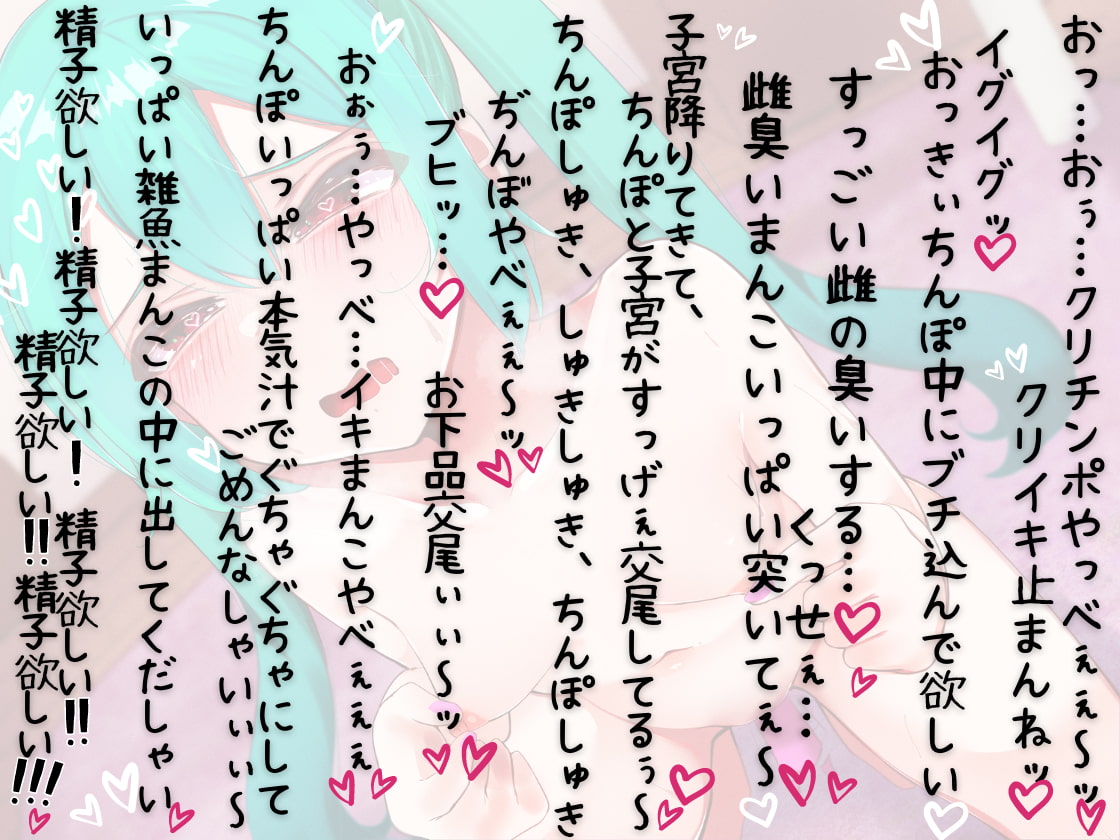 おっ…おぅ…クリチンポやっべぇぇ～ッ
イグイグッ
クリイキ止まんねッ
おっきぃちんぽ中にブチ込んで欲しい
すっごい雌の臭いする…
くっせぇ…
雌臭いまんこいっぱい突いてぇ～
子宮降りてきて、
ちんぽと子宮がすっげぇ交尾してるぅ～
ちんぽしゅき、しゅきしゅき、ちんぽしゅき
ぢんぼやべぇぇ～ッ
ブヒッ…
お下品交尾ぃぃ～ッ
おぉぅ…やっべ…イキまんこやべぇぇぇ
ちんぽいっぱい本気汁でぐちゃぐちゃにして
ごめんなしゃいぃぃぃ～
いっぱい雑魚まんこの中に出してくだしゃい
精子欲しい！精子欲しい！精子欲しい!!
精子欲しい!!精子欲しい!!!